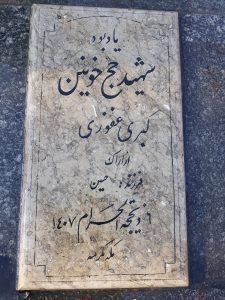 یادبود
شهید حج خونین
کبری غفوری
از اراک
فرزند: حسین
۶ ذیحجة الحرام ۱۴۰۷
مکه مکرمه